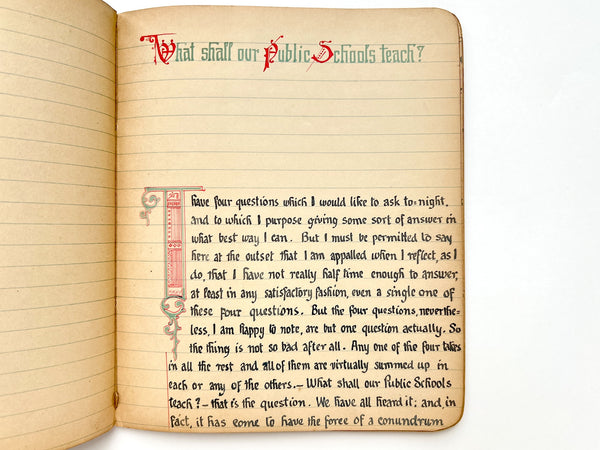 What shall our Public Schools teach?
I have four questions which I would like to ask to-night,
and to which I purpose giving some sort of answer in
what best way I can. But I must be permitted to say
here at the outset that I am appalled when I reflect, as I
do, that I have not really half time enough to answer,
at least in any satisfactory fashion, even a single one of
these four questions. But the four questions, neverthe-
less, I am happy to note, are but one question actually. So
the thing is not so bad after all. Any one of the four takes
in all the rest and all of them are virtually summed up in
each or any of the others.— What shall our Public Schools
teach?— that is the question. We have all heard it; and, in
fact, it has come to have the force of a conundrum